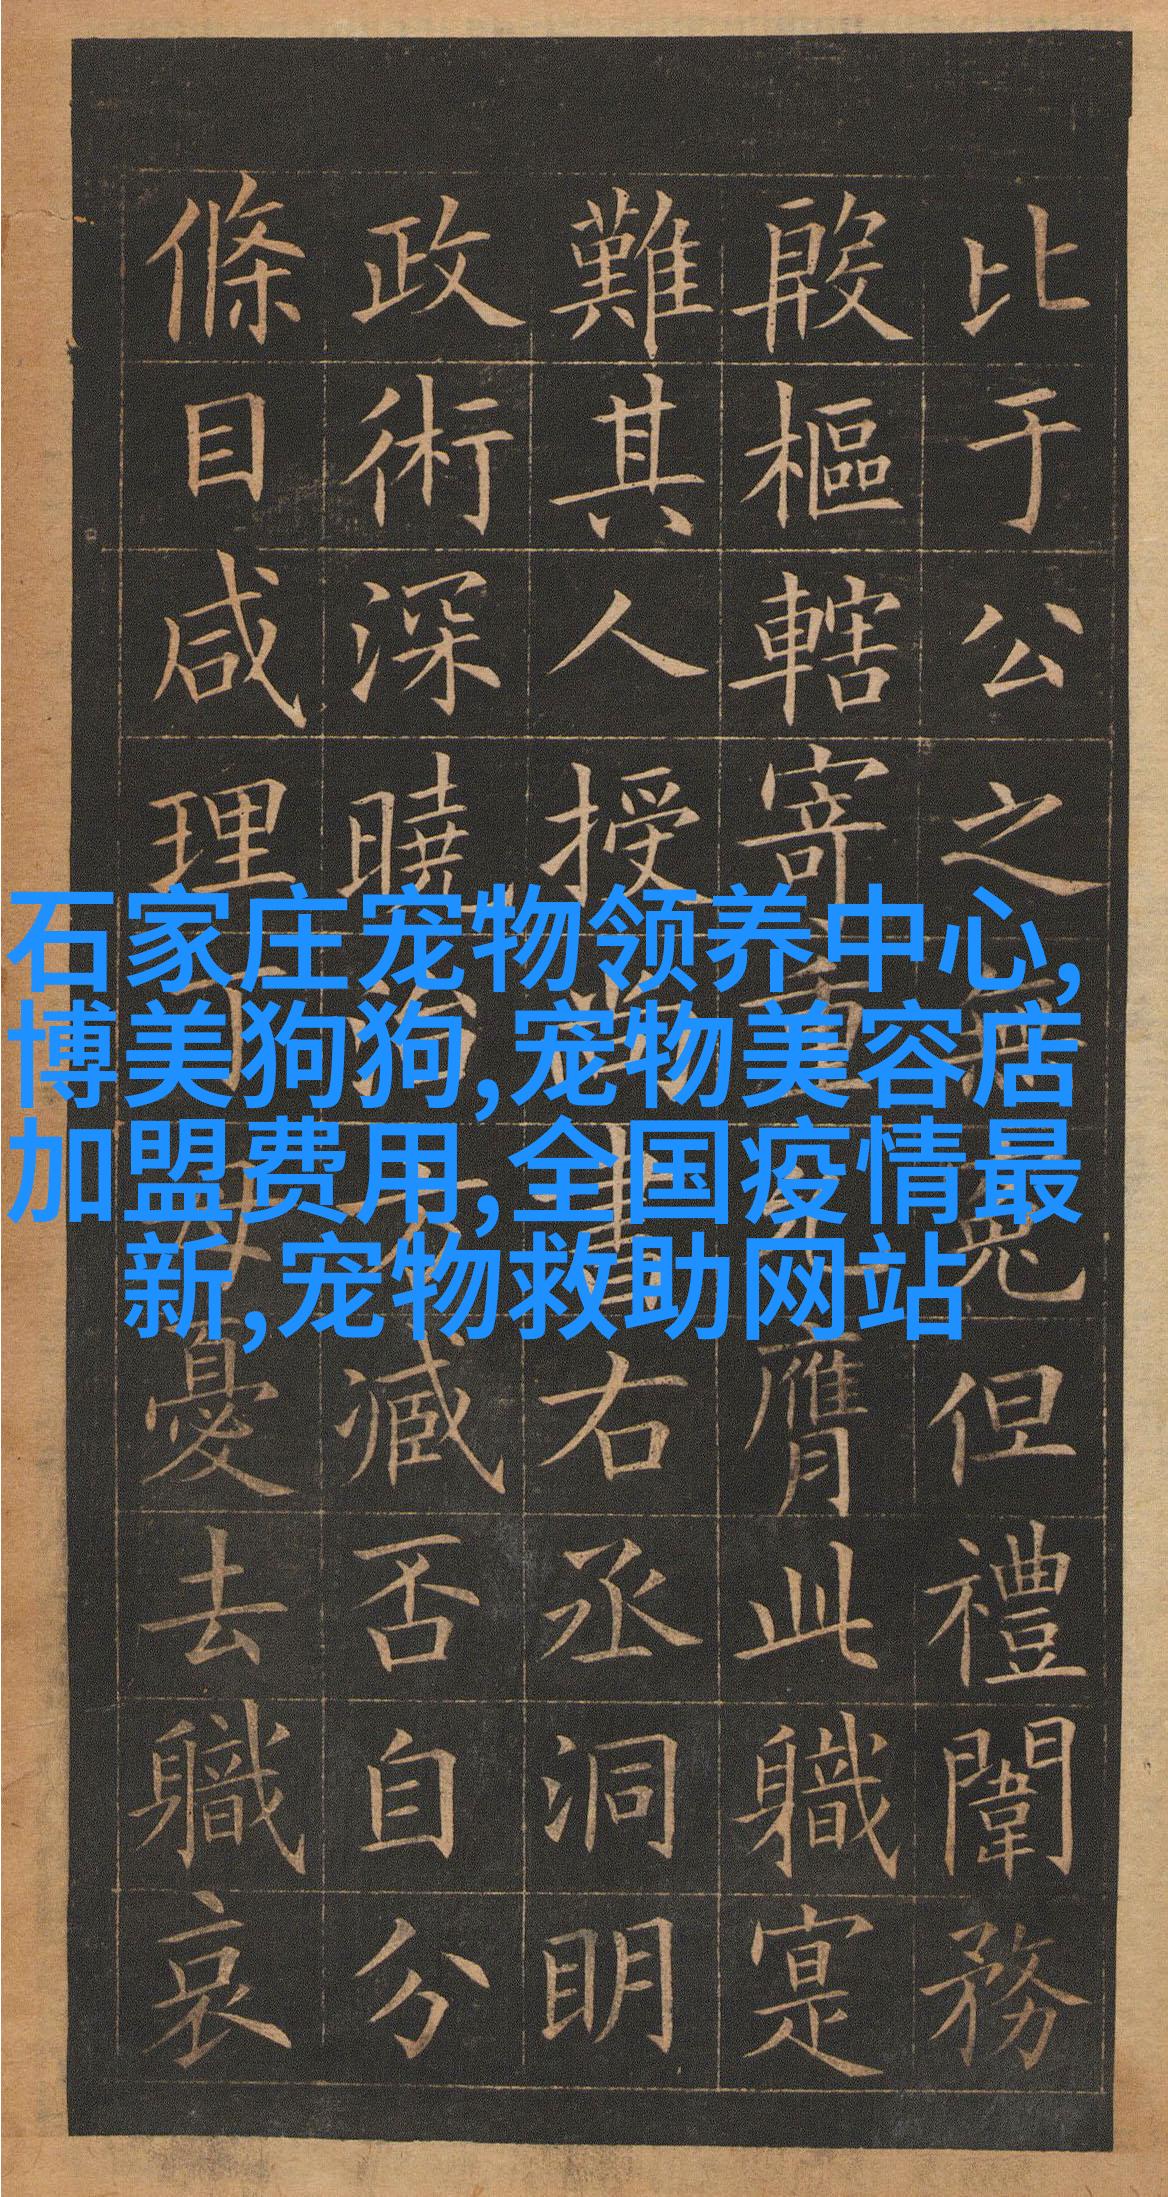 比于公之無冤但禮闈務
殷樞轄寄重允膺此職寔
難其人授尚書右丞洞明
政術深曉治方臧否自分
條目咸理丁母憂去職哀
石家庄宠物领养中心,
博美狗狗,宠物美容店
加盟费用,全国疫情最
新,宠物救助网站